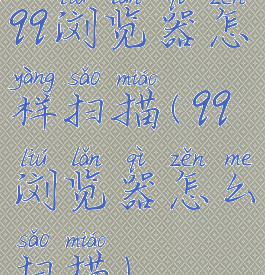 liú lǎn qì zěn
99浏览器怎
yàng sǎo miáo
样扫描(99
liú lǎn qì zěn me
浏览器怎么
sǎo miáo
扫描)